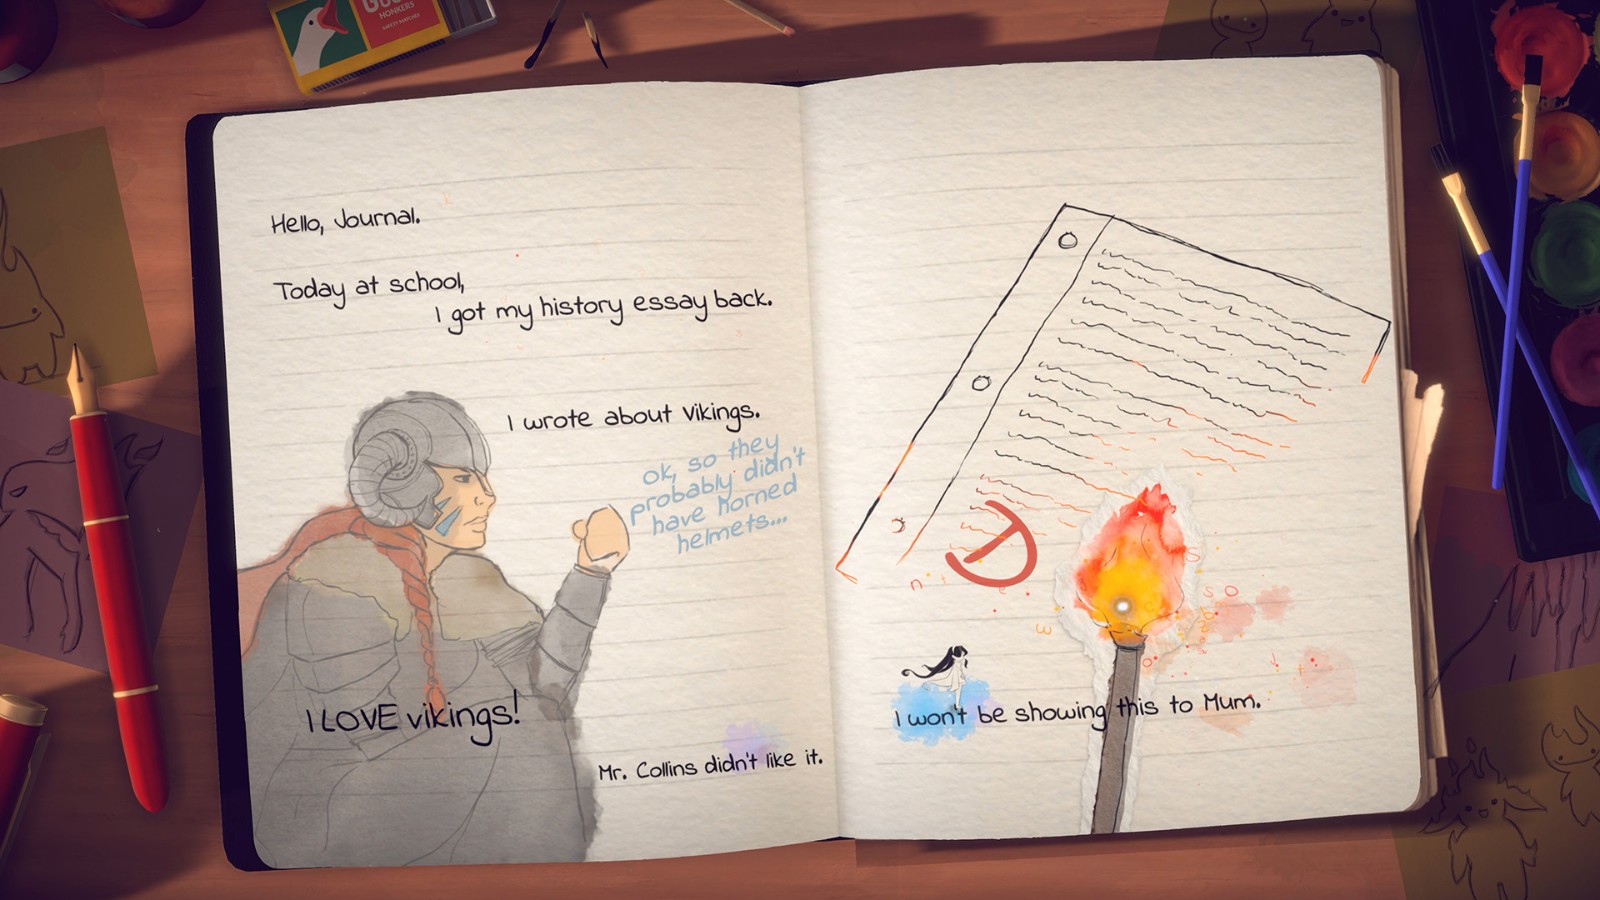 HONKERS
SAFETY MATCHES
Hello, Journal.
Today at school,
I got my history essay back.
I wrote about vikings.
ok, so they
probably didn't
have horned
helmets...
I LOVE vikings!
Mr. Collins didn't like it.
D
I won't be showing this to Mum.